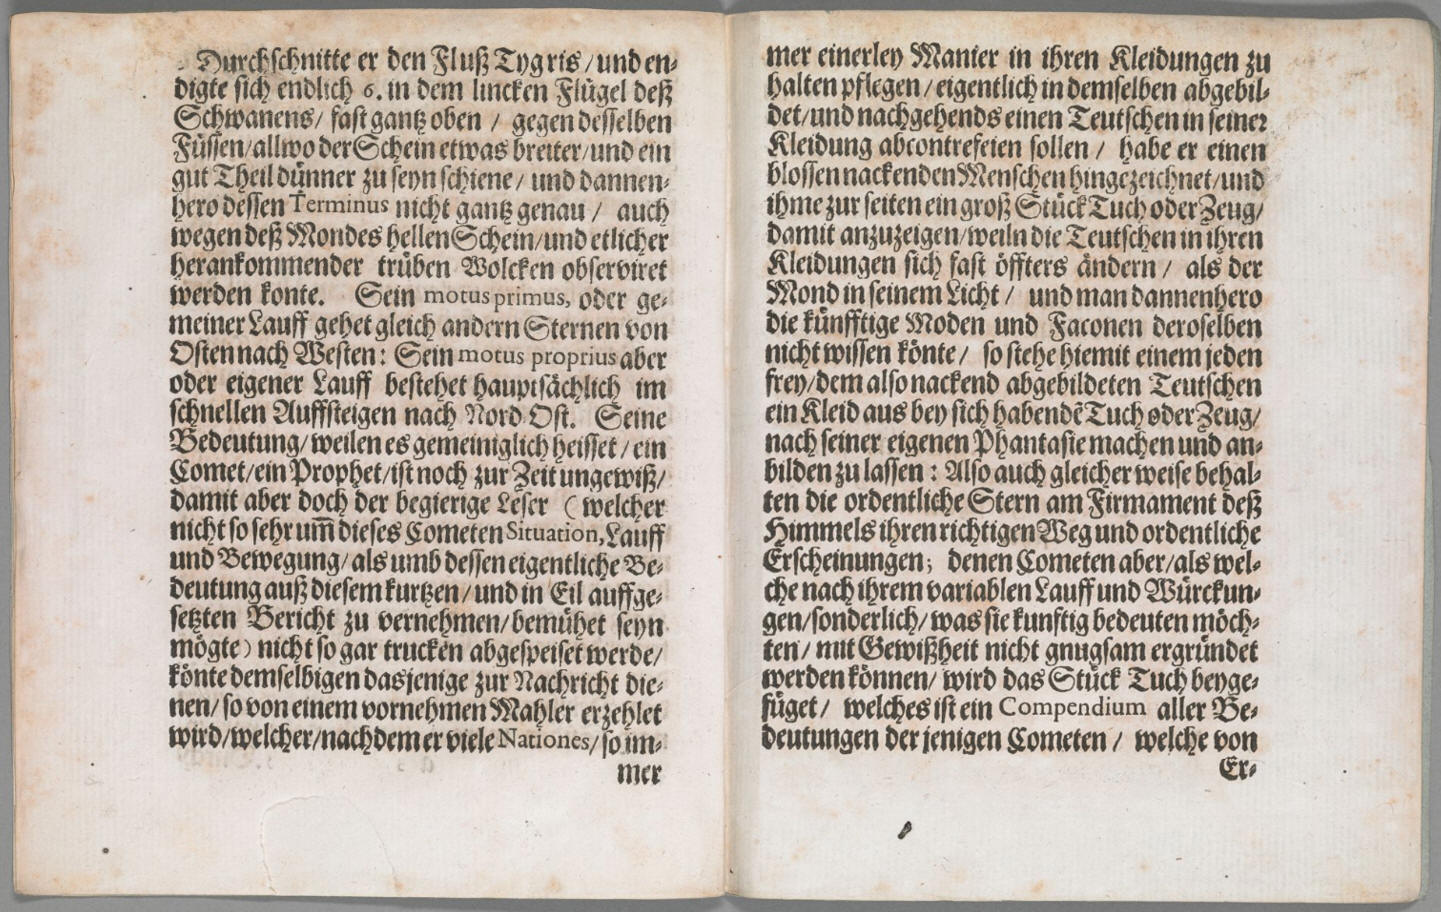 Durchschnitte er den Fluß Tygris / und en-
digte sich endlich 6. in dem lincken Flügel deß
Schwanens / fast gantz oben / gegen desselben
Füssen / allwo der Schein etwas breiter / und ein
gut Theil dünner zu seyn schiene / und dannen-
hero dessen Terminus nicht gantz genau / auch
wegen deß Mondes hellen Schein / und etlicher
herankommender trüben Wolcken observiret
werden konte. Sein motus primus, oder ge-
meiner Lauff gehet gleich andern Sternen von
Osten nach Westen: Sein motus proprius aber
oder eigener Lauff bestehet hauptsächlich im
schnellen Auffsteigen nach Nord Ost. Seine
Bedeutung / weilen es gemeiniglich heisset / ein
Comet / ein Prophet / ist noch zur Zeit ungewiß /
damit aber doch der begierige Leser ( welcher
nicht so sehr um̃ dieses Cometen Situation, Lauff
und Bewegung / als umb dessen eigentliche Be-
deutung auß diesem kurtzen / und in Eil auffge-
setzten Bericht zu vernehmen / bemühet seyn
mögte ) nicht so gar trucken abgespeiset werde /
könte demselbigen dasjenige zur Nachricht die-
nen / so von einem vornehmen Mahler erzehlet
wird / welcher / nachdem er viele Nationes / so im-
mer
mer einerley Manier in ihren Kleidungen zu
halten pflegen / eigentlich in demselben abgebil-
det / und nachgehends einen Teutschen in seiner
Kleidung abcontrefeien sollen / habe er einen
blossen nackenden Menschen hingezeichnet / und
ihme zur seiten ein groß Stück Tuch oder Zeug /
damit anzuzeigen / weiln die Teutschen in ihren
Kleidungen sich fast öffters ändern / als der
Mond in seinem Licht / und man dannenhero
die künfftige Moden und Faconen deroselben
nicht wissen könte / so stehe hiemit einem jeden
frey / dem also nackend abgebildeten Teutschen
ein Kleid aus bey sich habendē Tuch oder Zeug /
nach seiner eigenen Phantasie machen und an-
bilden zu lassen : Also auch gleicher weise behal-
ten die ordentliche Stern am Firmament deß
Himmels ihren richtigen Weg und ordentliche
Erscheinungen; denen Cometen aber / als wel-
che nach ihrem variablen Lauff und Würckun-
gen / sonderlich / was sie kunftig bedeuten möch-
ten / mit Gewißheit nicht gnugsam ergründet
werden können / wird das Stück Tuch beyge-
füget / welches ist ein Compendium aller Be-
deutungen der jenigen Cometen / welche von
Er-